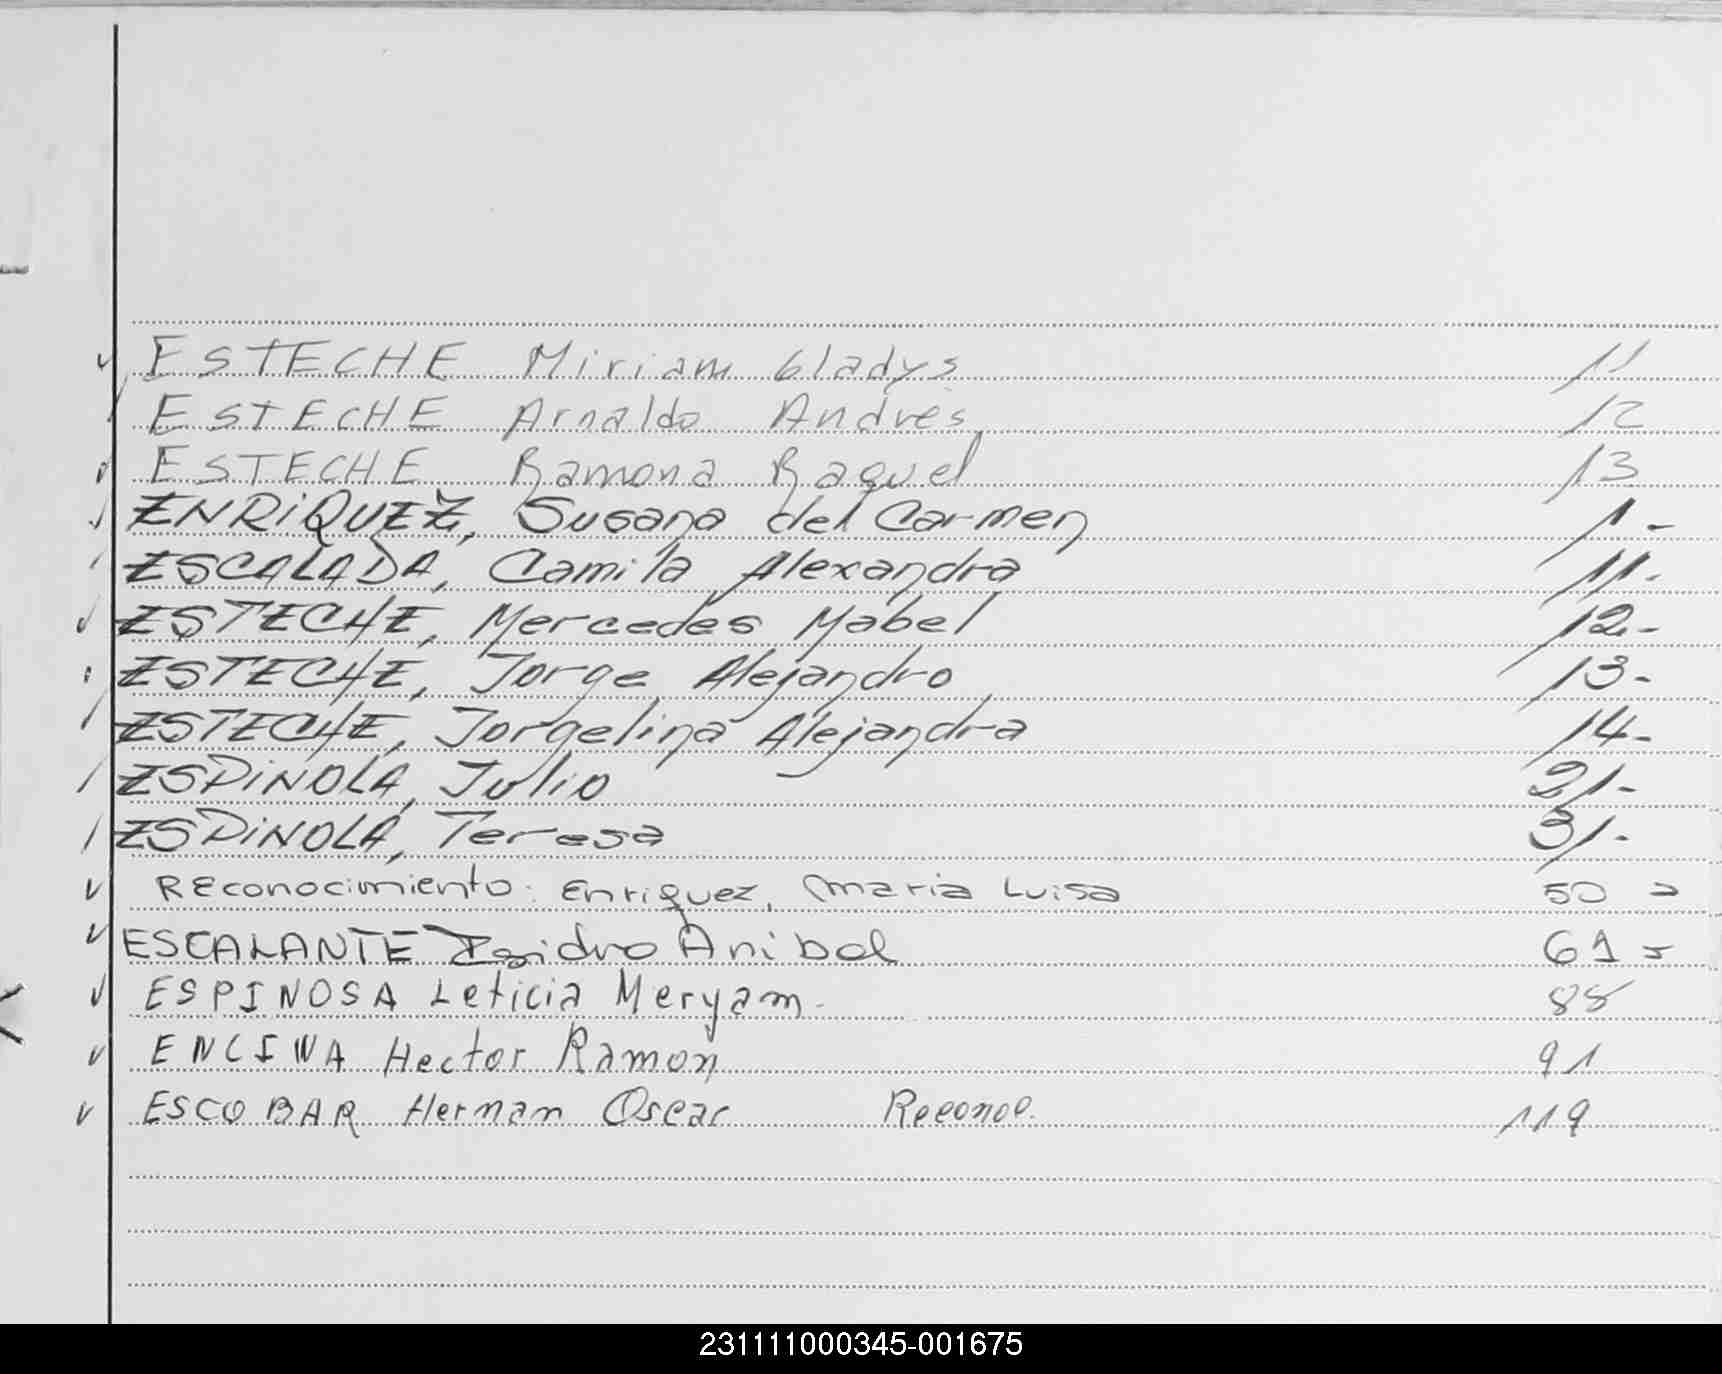 ESTECHE Miriam Gladys 11
ESTECHE Arnaldo Andrés 12
ESTECHE Ramona Raquel 13
ENRiQUEZ, Susana del Carmen 1.-
ESCALADA, Camila Alexandra 11.-
ESTECHE, Mercedes Mabel 12.-
ESTECHE, Jorge Alejandro 13-
ESTECHE, Jorgelina Alejandra 14-
ESPiNOLA, Julio 21.-
ESPiNOLA, Teresa 31.-
REconocimiento: Enriquez, Maria Luisa 50 =
ESCALANTE Isidro Anibal 61 =
ESPINOSA Leticia Meryam. 88
ENCINA Hector Ramon 91
ESCOBAR Hernan Oscar Reconoc. 119
231111000345-001675